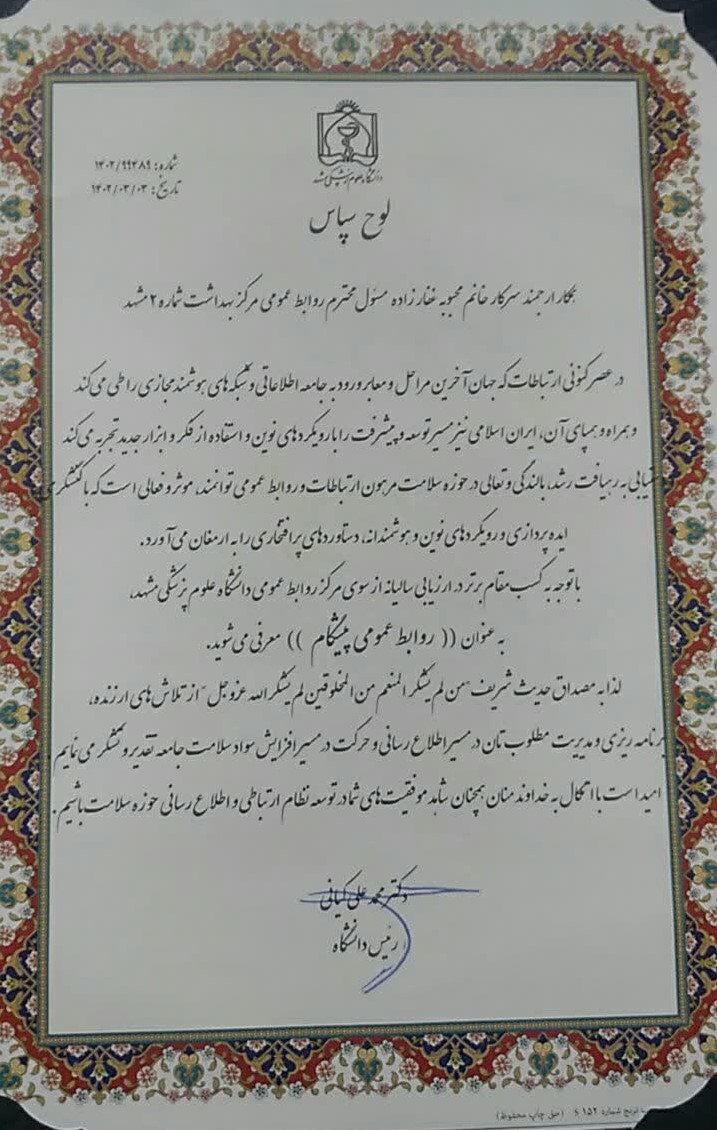 دانشگاه علوم پزشکی مشهد
شماره: ۱۴۰۲/۹۹۴۸۹
تاریخ: ۱۴۰۲/۰۳/۰۳
لوح سپاس
همکار ارجمند سرکار خانم محبوبه غفارزاده مسئول محترم روابط عمومی مرکز بهداشت شماره ۲ مشهد
در عصر کنونی ارتباطات که جهان آخرین مراحل و معابر ورود به جامعه اطلاعاتی و شبکه های هوشمند مجازی را طی می کند
و همراه و همپای آن، ایران اسلامی نیز مسیر توسعه و پیشرفت را با رویکردهای نوین و استفاده از فکر و ابزار جدید تجربه می کند
به رهیافت رشد، بالندگی و تعالی در حوزه سلامت مرهون ارتباطات و روابط عمومی توانمند، موثر و فعالی است که با کنشگری
ایده پردازی و رویکردهای نوین و هوشمندانه، دستاوردهای پرافتخاری را به ارمغان می آورد.
با توجه به کسب مقام برتر در ارزیابی سالیانه از سوی مرکز روابط عمومی دانشگاه علوم پزشکی مشهد،
به عنوان (( روابط عمومی پیشگام )) معرفی می شوید.
لذا به مصداق حدیث شریف "من لم یشکر المنعم من المخلوقین لم یشکر الله عزوجل" از تلاش های ارزنده،
برنامه ریزی و مدیریت مطلوب تان در مسیر اطلاع رسانی و حرکت در مسیر افزایش سواد سلامت جامعه تقدیر و تشکر می نمایم
امید است با اتکال به خداوند منان همچنان شاهد موفقیت های شما در توسعه نظام ارتباطی و اطلاع رسانی حوزه سلامت باشیم.
دکتر محمد علی کیانی
رئیس دانشگاه
ترنج شماره ۱۵۲ S (حق چاپ محفوظ)